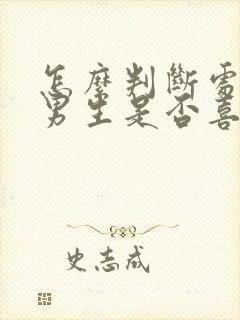 怎麼判斷
男生是否喜
史志成